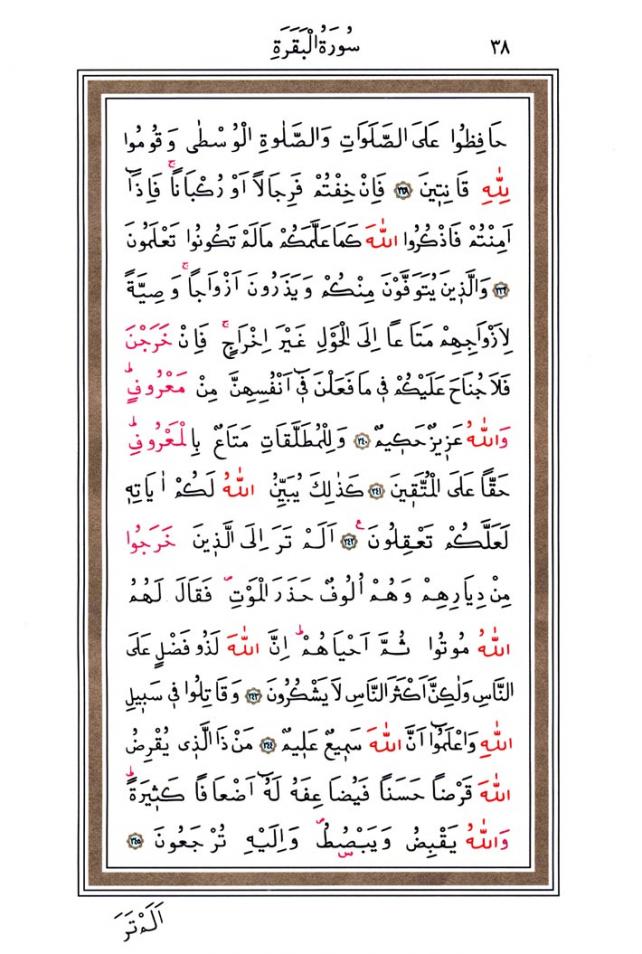 ٣٨ سُورَةُ الْبَقَرَةِ
حَافِظُوا عَلَى الصَّلَوَاتِ وَالصَّلٰوةِ الْوُسْطٰى وَقُومُوا
لِلّٰهِ قَانِتٖينَ ﴿٢٣٨﴾ فَاِنْ خِفْتُمْ فَرِجَالاً اَوْ رُكْبَاناًۚ فَاِذَٓا
اَمِنْتُمْ فَاذْكُرُوا اللّٰهَ كَمَا عَلَّمَكُمْ مَالَمْ تَكُونُوا تَعْلَمُونَ
﴿٢٣٩﴾ وَالَّذٖينَ يُتَوَفَّوْنَ مِنْكُمْ وَيَذَرُونَ اَزْوَاجاًۚ وَصِيَّةً
لِاَزْوَاجِهِمْ مَتَاعاً اِلَى الْحَوْلِ غَيْرَ اِخْرَاجٍۚ فَاِنْ خَرَجْنَ
فَلَا جُنَاحَ عَلَيْكُمْ فٖى مَا فَعَلْنَ فٖٓى اَنْفُسِهِنَّ مِنْ مَعْرُوفٍؕ
وَاللّٰهُ عَزٖيزٌ حَكٖيمٌ ﴿٢٤٠﴾ وَلِلْمُطَلَّقَاتِ مَتَاعٌ بِالْمَعْرُوفِؕ
حَقًّا عَلَى الْمُتَّقٖينَ ﴿٢٤١﴾ كَذٰلِكَ يُبَيِّنُ اللّٰهُ لَكُمْ اٰيَاتِهٖ
لَعَلَّكُمْ تَعْقِلُونَ ﴿٢٤٢﴾ ع اَلَمْ تَرَ اِلَى الَّذٖينَ خَرَجُوا
مِنْ دِيَارِهِمْ وَهُمْ اُلُوفٌ حَذَرَ الْمَوْتِࣕ فَقَالَ لَهُمُ
اللّٰهُ مُوتُوا ثُمَّ اَحْيَاهُمْؕ اِنَّ اللّٰهَ لَذُو فَضْلٍ عَلَى
النَّاسِ وَلٰكِنَّ اَكْثَرَ النَّاسِ لَا يَشْكُرُونَ ﴿٢٤٣﴾ وَقَاتِلُوا فٖى سَبٖيلِ
اللّٰهِ وَاعْلَمُٓوا اَنَّ اللّٰهَ سَمٖيعٌ عَلٖيمٌ ﴿٢٤٤﴾ مَنْ ذَا الَّذٖى يُقْرِضُ
اللّٰهَ قَرْضاً حَسَناً فَيُضَاعِفَهُ لَهُٓ اَضْعَافاً كَثٖيرَةًؕ
وَاللّٰهُ يَقْبِضُ وَيَبْصُۣطُࣕ وَاِلَيْهِ تُرْجَعُونَ ﴿٢٤٥﴾
اَلَمْ تَرَ